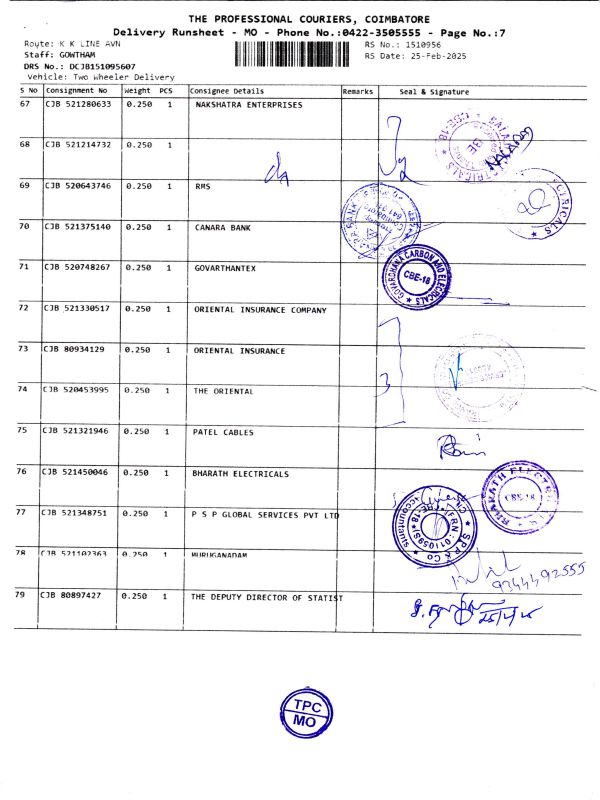 THE PROFESSIONAL COURIERS, COIMBATORE
Delivery Runsheet - MO - Phone No.:0422-3505555 - Page No.:7
Route: K K LINE AVN
RS No.: 1510956
Staff: GOWTHAM
RS Date: 25-Feb-2025
DRS No.: DCJB151095607
Vehicle: Two Wheeler Delivery
S No Consignment No Weight PCS Consignee Details Remarks Seal & Signature
67 CJB 521280633 0.250 1 NAKSHATRA ENTERPRISES
68 CJB 521214732 0.250 1
69 CJB 520643746 0.250 1 RMS
70 CJB 521375140 0.250 1 CANARA BANK
71 CJB 520748267 0.250 1 GOVARTHANTEX
GOVARDHANA CARBON AND ELECTRICALS
CBE-18
72 CJB 521330517 0.250 1 ORIENTAL INSURANCE COMPANY
73 CJB 80934129 0.250 1 ORIENTAL INSURANCE
3
74 CJB 520453995 0.250 1 THE ORIENTAL
75 CJB 521321946 0.250 1 PATEL CABLES
76 CJB 521450046 0.250 1 BHARATH ELECTRICALS
BHARATH ELECTRICALS
CBE-18
77 CJB 521348751 0.250 1 P S P GLOBAL SERVICES PVT LTD
78 CJB 521102363 0.250 1 MURUGANADAM
9344492555
79 CJB 80897427 0.250 1 THE DEPUTY DIRECTOR OF STATIST
TPC
MO